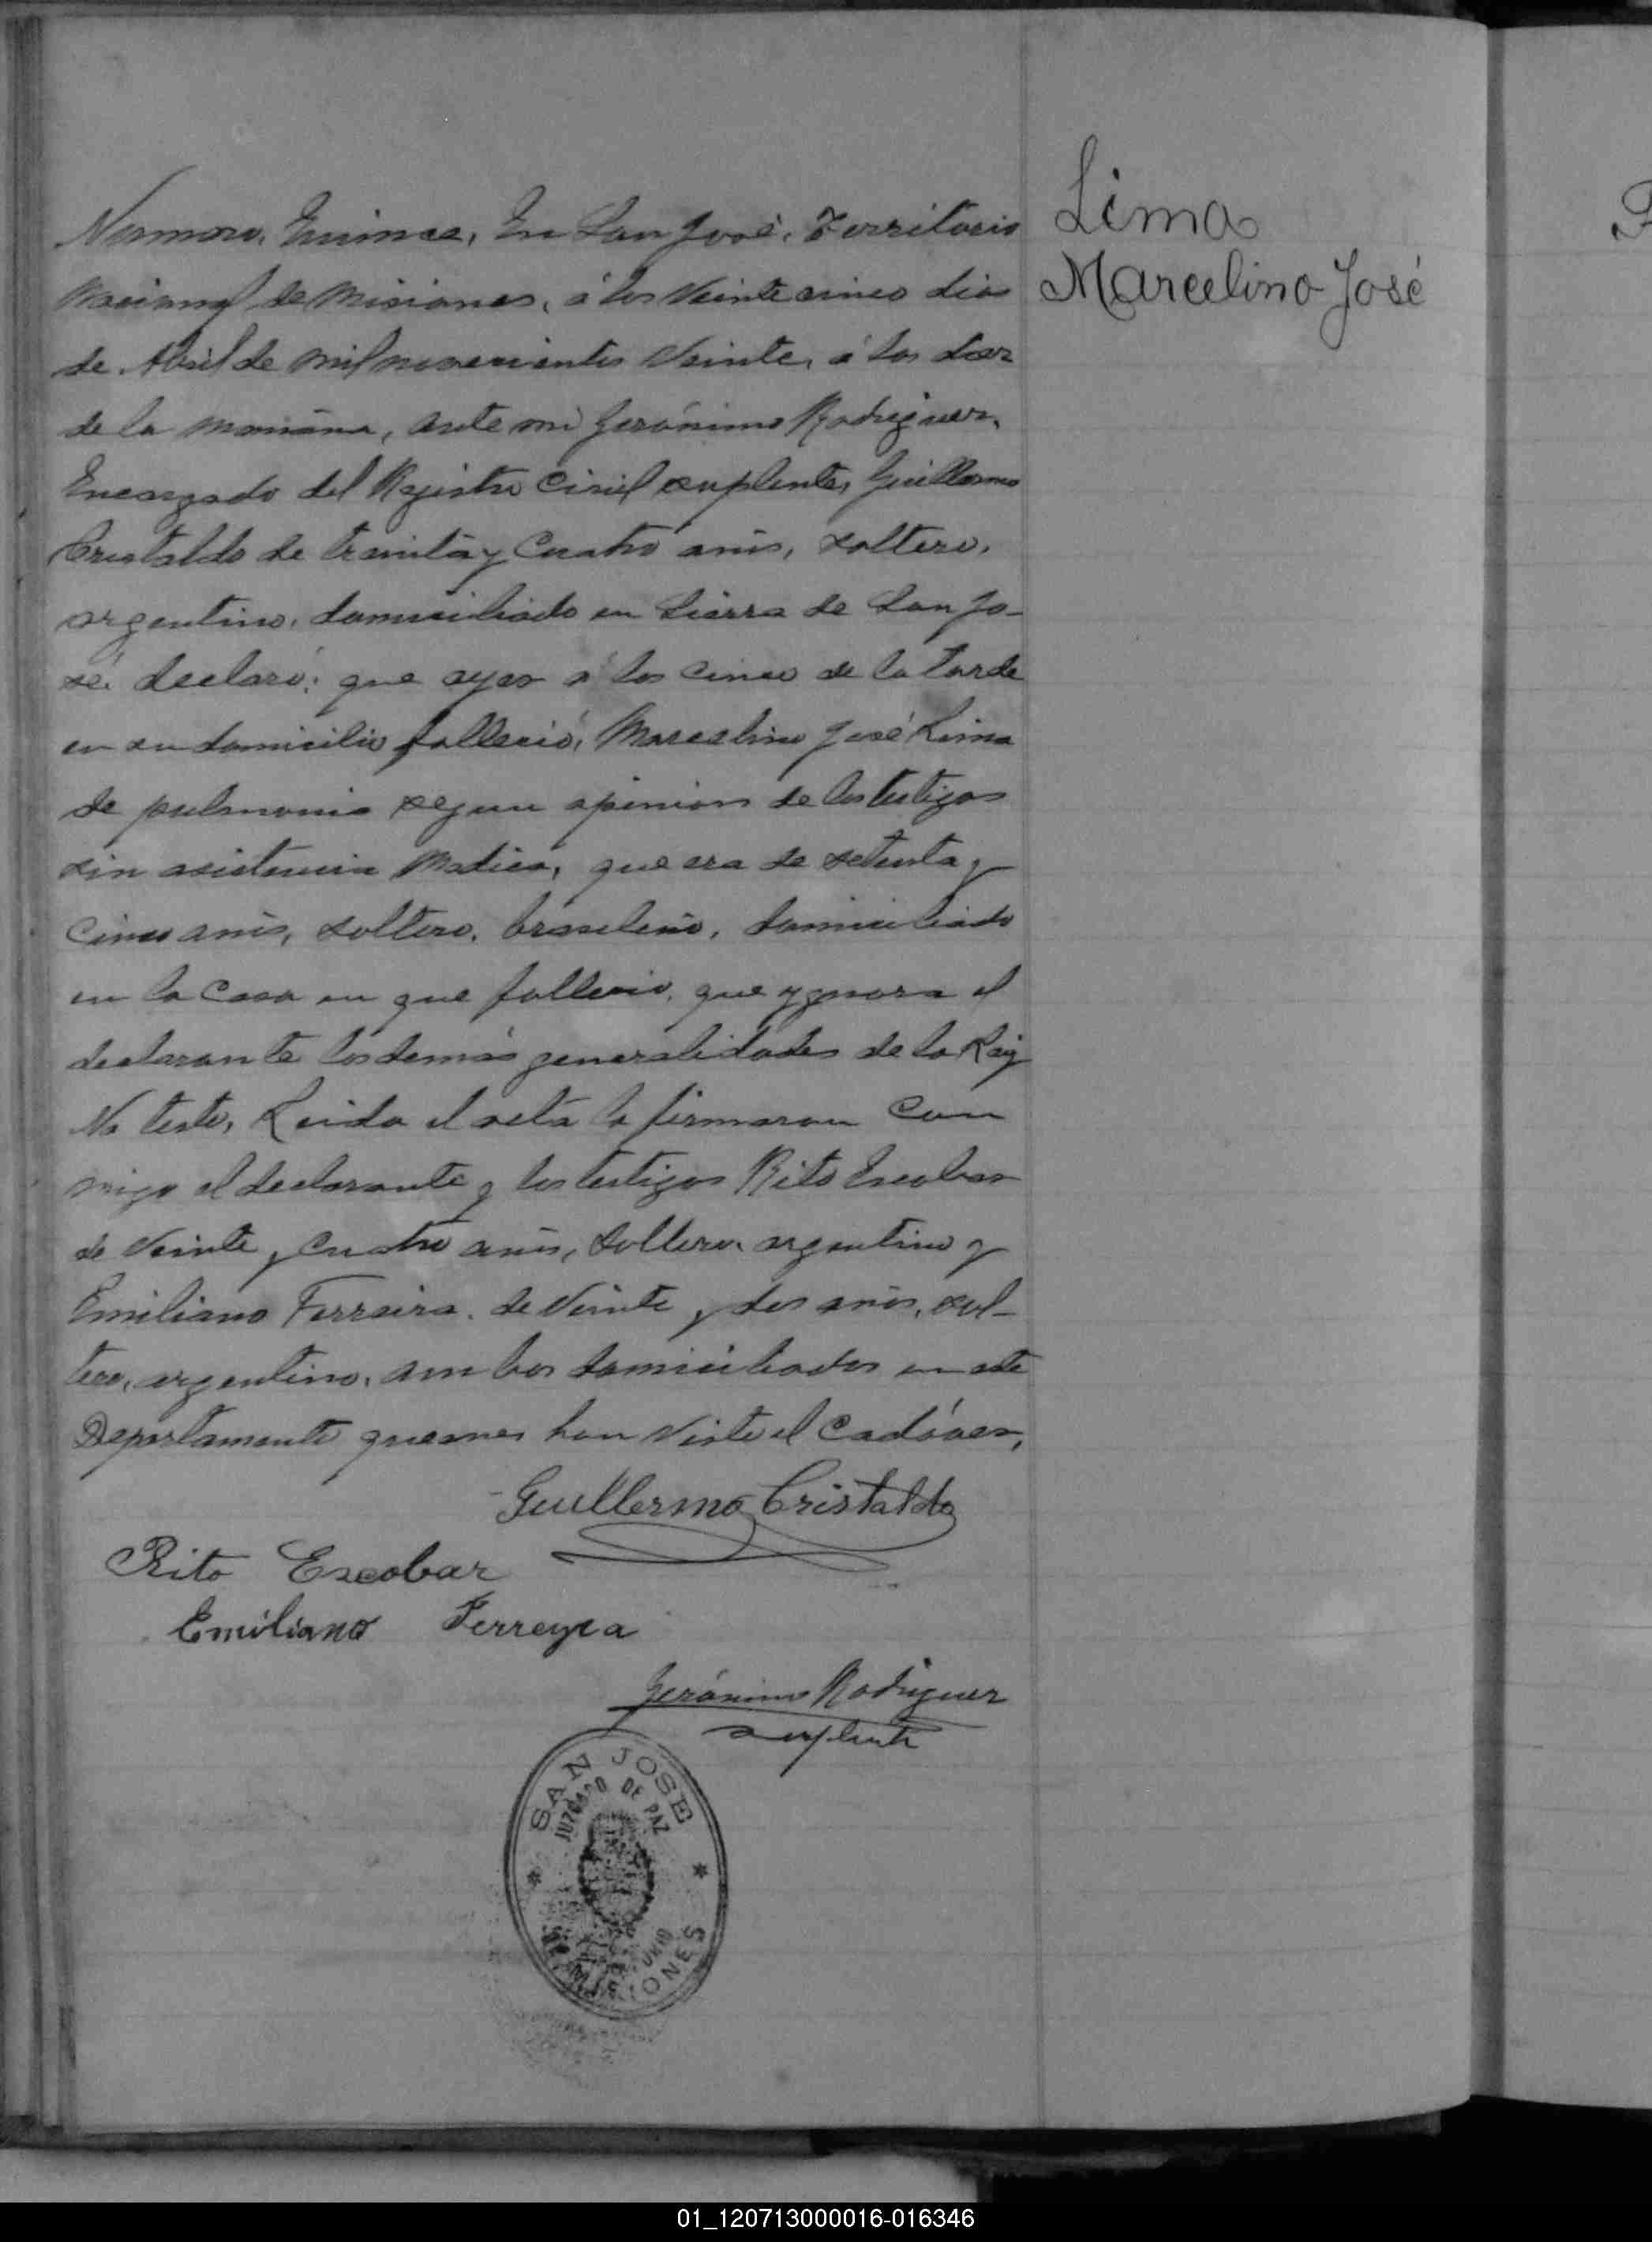 Numero, Quince, En San José, Territorio
Nacional de Misiones, á los Veinte cinco dias
de Abril de mil novecientos Veinte, á las diez
de la mañana, ante mi Gerónimo Rodriguez,
Encargado del Registro Civil suplente, Guillermo
Cristaldo de treinta y Cuatro anis, soltero,
argentino, domiciliado en Sierra de San Jo-
sé, declaró: que ayer á las cinco de la tarde
en su domicilio falleció, Marcelino José Lima
de pulmonia segun opinion de los testigos
sin asistencia Medica, que era de setenta y
Cinco anis, soltero, brasileño, domiciliado
en la casa en que fallecio, que ygnora el
declarante las demás generalidades de la Ley
No testo, Leida el acta la firmaron Con
migo el declarante y los testigos Rito Escobar
de Veinte y Cuatro anis, Soltero, argentino y
Emiliano Ferreira, de Veinte y dos anis, sol-
tero, argentino, ambos domiciliados en este
Departamento quienes han Visto el Cadáver,
Guillermo Cristaldo
Rito Escobar
Emiliano Ferreyra
Gerónimo Rodriguez
suplente
SAN JOSE
JUZGADO DE PAZ
MISIONES
Lima
Marcelino José
01_120713000016-016346